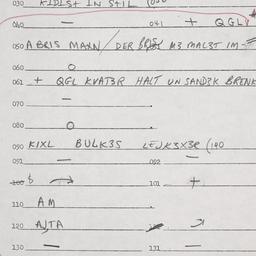 030 KIDIST IN STIL (030
040 — 041 + QGL
050 ABRIS MANN / DER M3 MAL3T IM -
060 O
061 + QGL KVAT3R HALT UN SAND3K BRENK
070 —
080 O
090 KIXL BULK3S LEJK3X3R (140
091 — 092 —
100 101 +
110 AM
120 AJTA
130 — 131 —